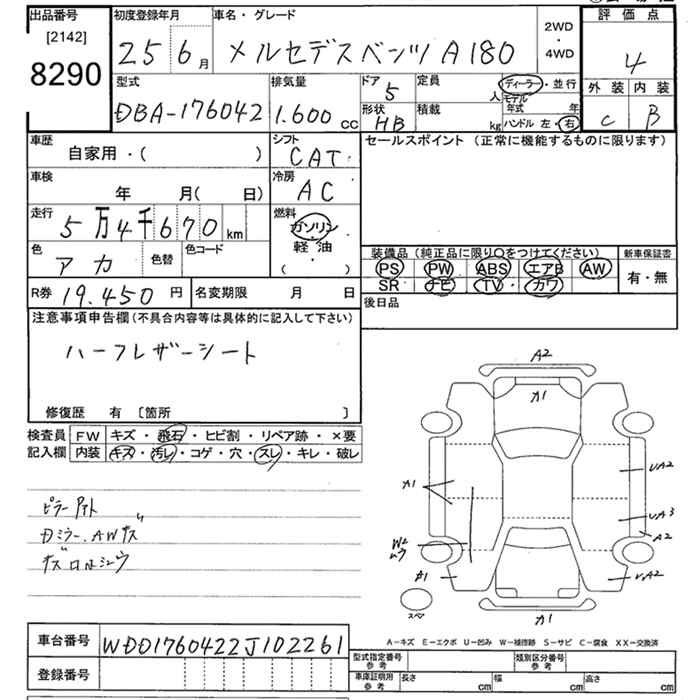 出品番号 初度登録年月 車名・グレード 2WD・4WD 評価点
[2142]
8290
25 6月 メルセデスベンツ A180 4
型式 排気量 ドア 定員 ディーラー・並行 外装 内装
DBA-176042 1.600cc 5 人 モデル年式 年 C B
形状 積載 HB kg ハンドル 左・右
車歴 シフト セールスポイント (正常に機能するものに限ります)
自家用・( ) CAT
車検 冷房
年 月( 日) AC
走行 燃料
5万4千670km ガソリン・軽油( )
色 色替 色コード 装備品 (純正品に限り○をつけてください) 新車保証書
アカ PS PW ABS エアB AW 有・無
SR ナビ TV カワ
R券 19.450円 名変期限 月 日 後日品
注意事項申告欄 (不具合内容等は具体的に記入して下さい)
ハーフレザーシート
修復歴 有 [箇所 ]
検査員 FW キズ・飛石・ヒビ割・リペア跡・×要
記入欄 内装 キズ・汚レ・コゲ・穴・スレ・キレ・破レ
A2
A1
UA2
A1
UA3
A2
W2
A1
UA2
A1
スペア
ピラー
Dミラー、AWキズ
A-キズ E-エクボ U-凹み W-補修跡 S-サビ C-腐食 XX-交換済
車台番号 WDD1760422J102261
登録番号
型式指定番号 参考 類別区分番号 参考
車庫証明用 参考 長さ cm 幅 cm 高さ cm